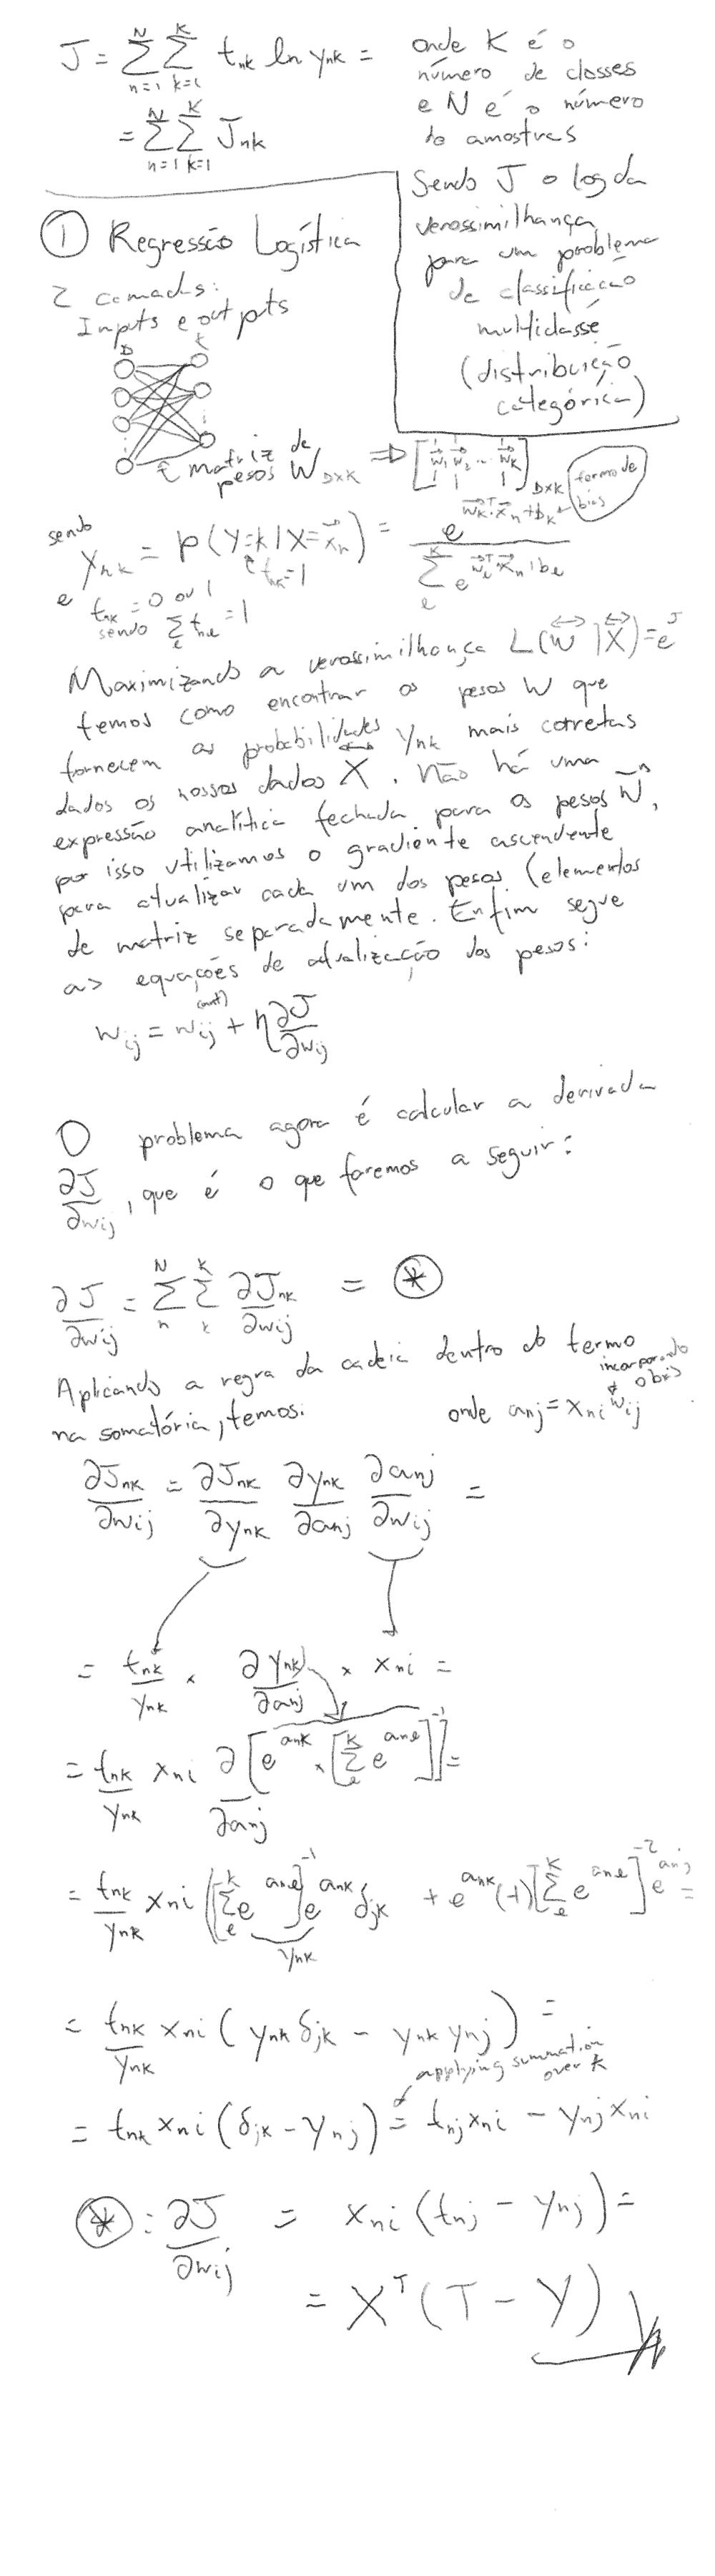 J = Σ_{n=1}^{N} Σ_{k=1}^{K} t_{nk} ln y_{nk} =
= Σ_{n=1}^{N} Σ_{k=1}^{K} J_{nk}
onde K é o
número de classes
e N é o número
de amostras
Sendo J o log da
verossimilhança
para um problema
de classificação
multiclasse
(distribuição
categórica)
① Regressão Logística
2 camadas:
Inputs e outputs
D K
matriz de
pesos W_{D×K} ⇒ [w⃗_1 w⃗_2 ... w⃗_K]_{D×K}
termo de
bias
sendo
y_{nk} = p(Y=k|X=x⃗_n) = e^{w⃗_k^T x⃗_n + b_k} / Σ_{l}^{K} e^{w⃗_l^T x⃗_n + b_l}
t_{nk}=1
e t_{nk} = 0 ou 1
sendo Σ_l t_{nl} = 1
Maximizando a verossimilhança L(W|X) = e^J
temos como encontrar os pesos W que
fornecem as probabilidades y_{nk} mais corretas
dados os nossos dados X. Não há uma
expressão analítica fechada para os pesos W,
por isso utilizamos o gradiente ascendente
para atualizar cada um dos pesos (elementos
de matriz separadamente. Enfim segue
as equações de atualização dos pesos:
w_{ij} = w_{ij}^{(ant)} + η ∂J/∂w_{ij}
O problema agora é calcular a derivada
∂J/∂w_{ij}, que é o que faremos a seguir:
∂J/∂w_{ij} = Σ_{n}^{N} Σ_{k}^{K} ∂J_{nk}/∂w_{ij} = ⊛
Aplicando a regra da cadeia dentro do termo
na somatória, temos:
incorporando
o bias
onde a_{nj} = x_{ni} w_{ij}
∂J_{nk}/∂w_{ij} = ∂J_{nk}/∂y_{nk} ∂y_{nk}/∂a_{nj} ∂a_{nj}/∂w_{ij} =
= t_{nk}/y_{nk} × ∂y_{nk}/∂a_{nj} × x_{ni} =
= t_{nk}/y_{nk} x_{ni} ∂/∂a_{nj} [e^{a_{nk}} × [Σ_{l}^{K} e^{a_{nl}}]^{-1}] =
= t_{nk}/y_{nk} x_{ni} ([Σ_{l}^{K} e^{a_{nl}}]^{-1} e^{a_{nk}} δ_{jk} + e^{a_{nk}} (-1) [Σ_{l}^{K} e^{a_{nl}}]^{-2} e^{a_{nj}} =
y_{nk}
= t_{nk}/y_{nk} x_{ni} (y_{nk} δ_{jk} - y_{nk} y_{nj}) =
applying summation
over k
= t_{nk} x_{ni} (δ_{jk} - y_{nj}) = t_{nj} x_{ni} - y_{nj} x_{ni}
⊛: ∂J/∂w_{ij} = x_{ni} (t_{nj} - y_{nj}) =
= X^T (T - Y)